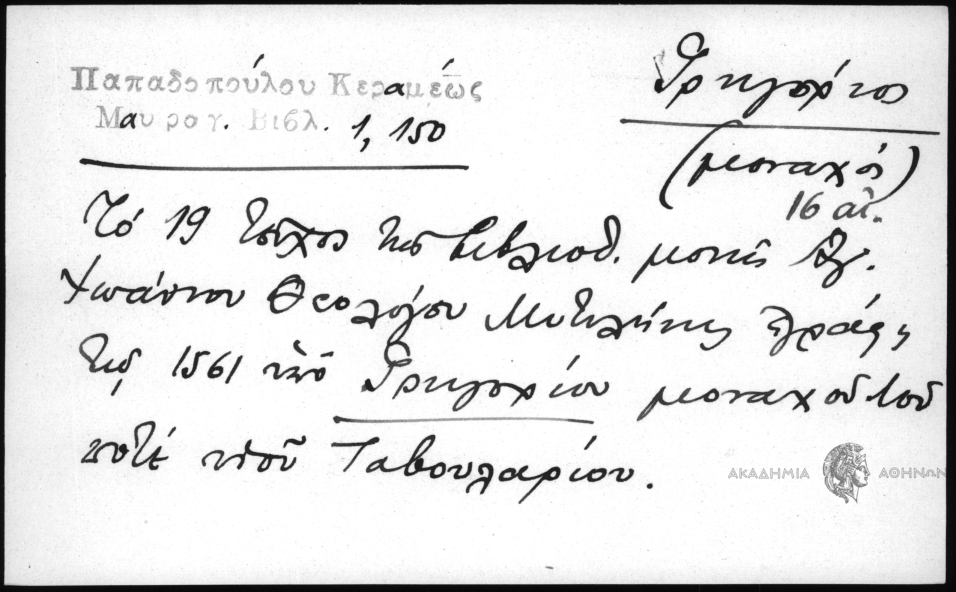 Παπαδοπούλου Κεραμέως
Μαυρογ. Βιβλ. 1, 150
Γρηγόριος
(μοναχός)
16 αἰ.
Τό 19 τεῦχος τῆς βιβλιοθ. μονῆς Ἁγ.
Ἰωάννου Θεολόγου Μυτιλήνης ἐγράφη
τῷ 1561 ὑπό Γρηγορίου μοναχοῦ τοῦ
ποτέ υἱοῦ Ταβουλαρίου.
ΑΚΑΔΗΜΙΑ ΑΘΗΝΩΝ